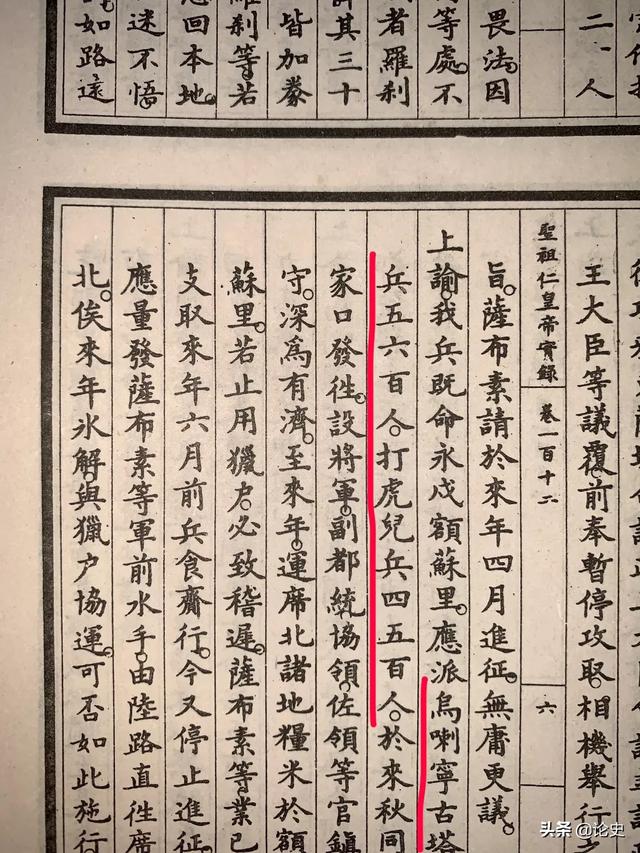 二、人
畏法因
等處。不
者羅刹
其三十
皆加豢
羅刹等。若
回本地。
迷不悟。
如路遠
王大臣等議覆。前奉暫停攻取。相機舉行之
聖祖仁皇帝實錄 卷一百十二 六
旨。薩布素請於來年四月進征。無庸更議。
上諭。我兵既命永戍額蘇里。應派烏喇寧古塔
兵五六百人。打虎兒兵四五百人。於來秋同
家口發往。設將軍。副都統協領。佐領等官鎮
守。深為有濟。至來年。運席北諸地糧米於額
蘇里。若止用獵戶。必致稽遲。薩布素等。業已
支取來年六月前兵食齎行。今又停止進征。
應量發薩布素等軍前水手。由陸路直往席
北。俟來年冰解。與獵戶協運。可否如此施行。
头条 @论史